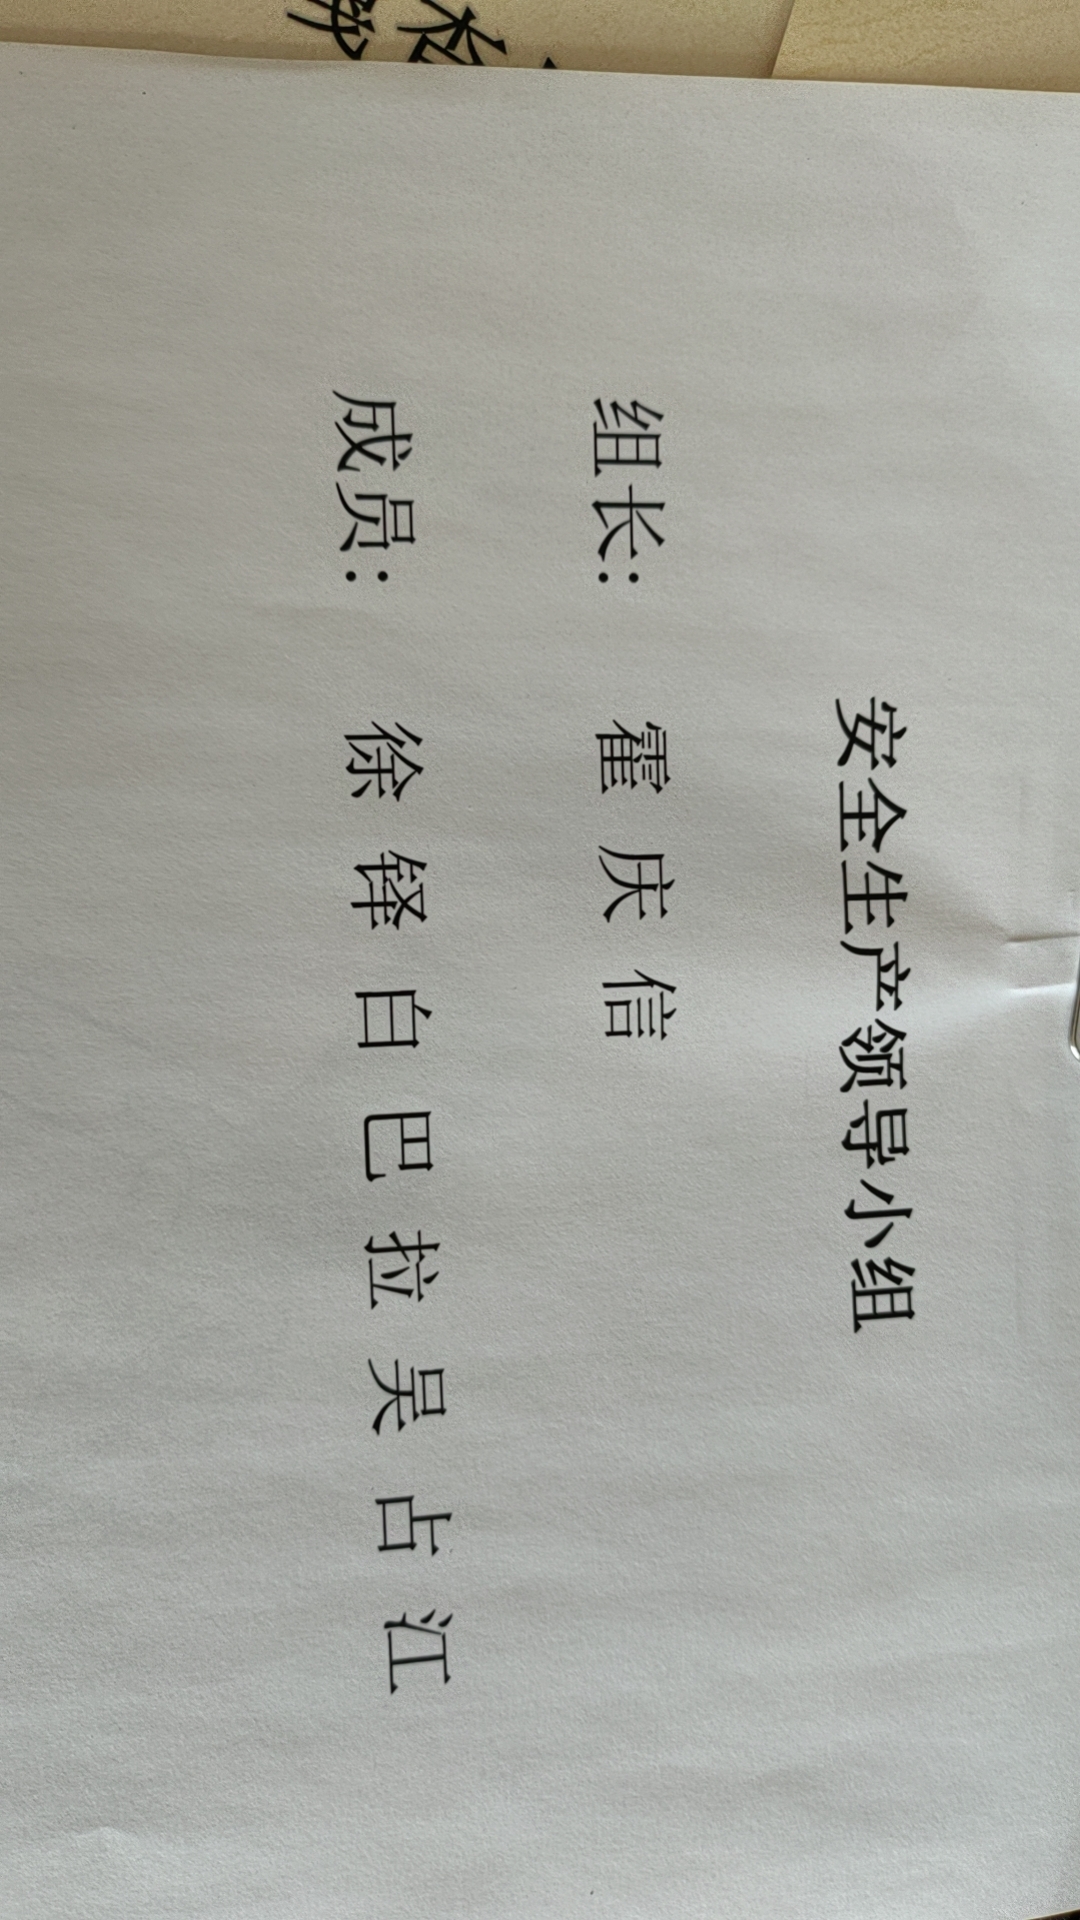 安全生产领导小组
组长： 霍 庆 信
成员： 徐 铎 白 巴 拉 吴 占 江